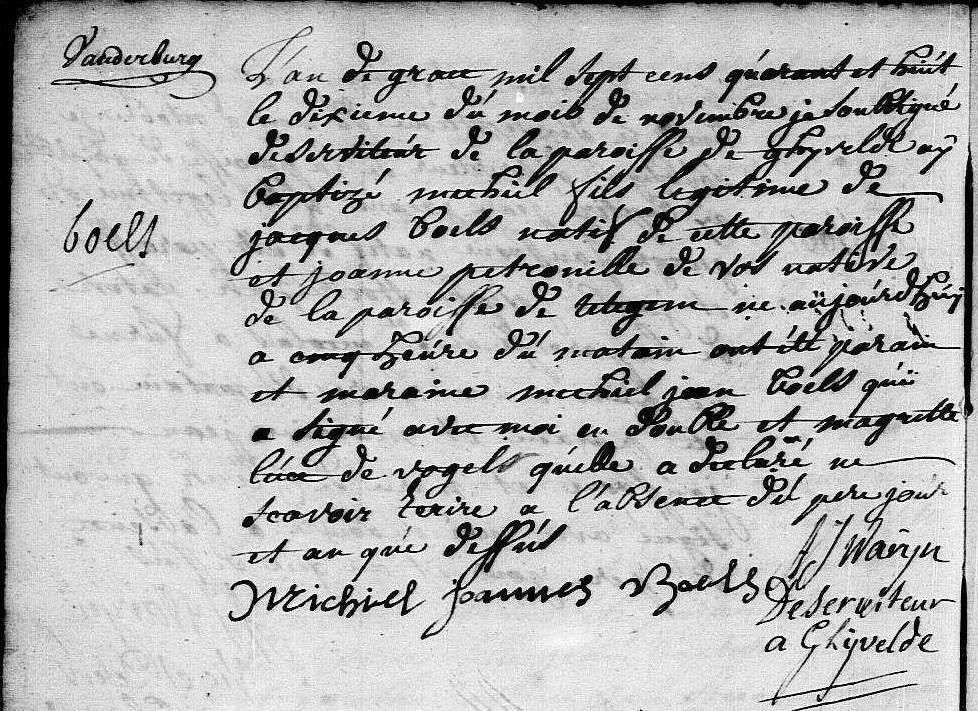 Vanderburg
L'an de grace mil sept cens quarant et huit
le dixieme du mois de novembre je soubsigné
deserviteur de la paroisse de ghyvelde ay
baptizé michiel fils legitime de
boels
jacques boels natif de cette paroisse
et joanne petronille de vos native
de la paroisse de tetegem ne aujourdhuy
a cinq heure du matain ont été parain
et maraine michiel jean boels qui
a signé avec moi en double et magrette
de vogels quelle a declaré ne
scavoir ecrire a l'absence du pere jour
et an que dessus
Michiel joannes Boels
Deserviteur
a Ghyvelde